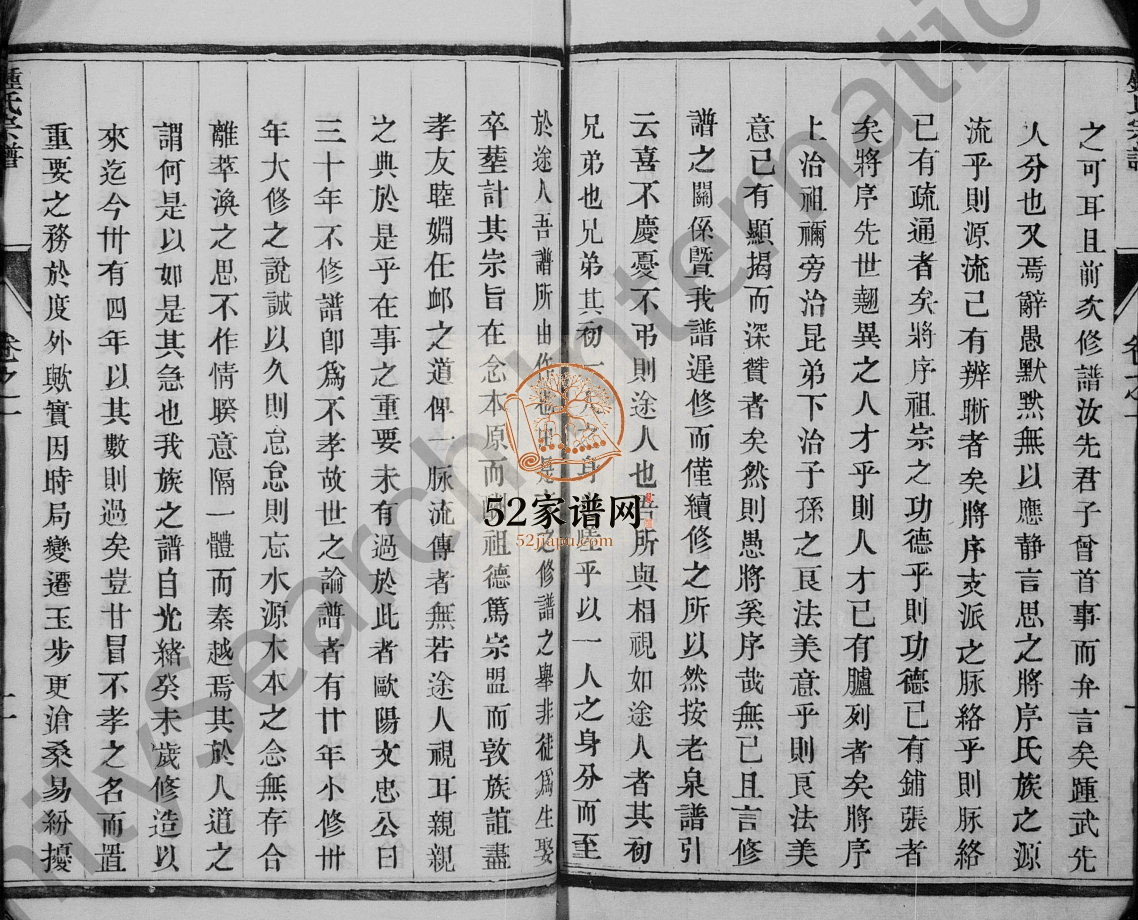 之可耳且前次修譜汝先君子曾首事而弁言矣踵武先
人分也又焉辭愚默默無以應静言思之將序氏族之源
流乎則源流已有辨晰者矣將序支派之脉絡乎則脉絡
已有疏通者矣將序祖宗之功德乎則功德已有鋪張者
矣將序先世翹異之人才乎則人才已有臚列者矣將序
上治祖禰旁治昆弟下治子孫之良法美意乎則良法美
意已有顯揭而深贊者矣然則愚將奚序哉無已且言修
譜之關係暨我譜遲修而僅續修之所以然按老泉譜引
云喜不慶憂不弔則途人也吾所與相視如途人者其初
兄弟也兄弟其初一人之身
乎以一人之身分而至
於途人吾譜所由作
之修譜之舉非徒爲生娶
卒塟計其宗旨在念本原而
祖德篤宗盟而敦族誼盡
孝友睦婣任卹之道俾一脉流傳者無若途人視耳親親
之典於是乎在事之重要未有過於此者歐陽文忠公曰
三十年不修譜卽爲不孝故世之論譜者有廿年小修卅
年大修之說誠以久則怠怠則忘水源木本之念無存合
離萃渙之思不作情睽意隔一體而秦越焉其於人道之
謂何是以如是其急也我族之譜自光緒癸未歲修造以
來迄今卅有四年以其數則過矣豈甘冒不孝之名而置
重要之務於度外歟實因時局變遷玉步更滄桑易紛擾
鍾氏宗譜
卷之一
52家谱网
52jiapu.com